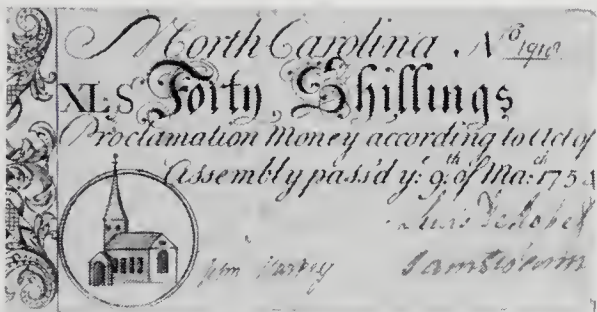 North Carolina. No 1918
XLS Forty Shillings
Proclamation Money according to Act of
Assembly pass'd ye: 9th of Mar:ch 1754
Lewis DeRosset
Jon Starkey Sam Swann